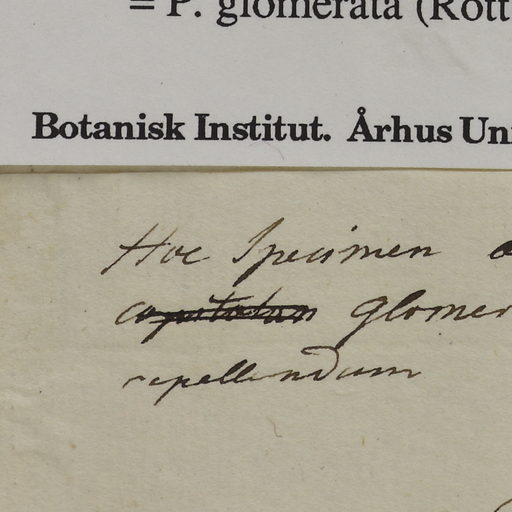 = P. glomerata (Rott
Botanisk Institut. Århus Uni
Hoc Specimen
glomer
repellendum